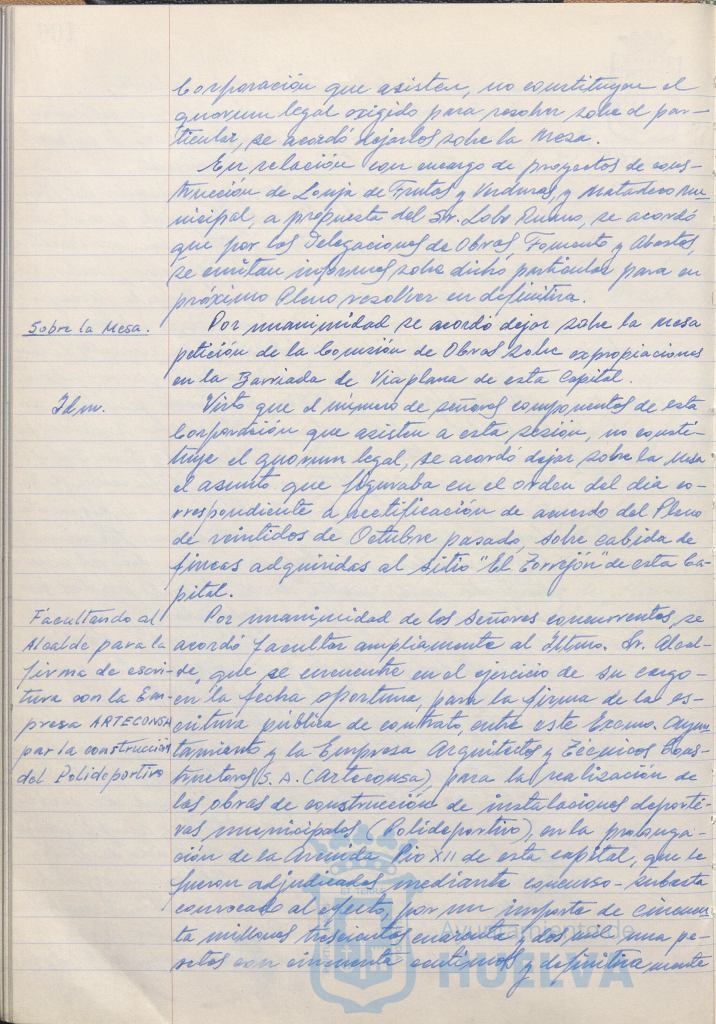 Corporación que asisten, no constituyen el
quorum legal exigido para resolver sobre el par-
ticular, se acordó dejarlos sobre la Mesa.
En relación con encargo de proyectos de cons-
trucción de Lonja de Frutas y Verduras, y Matadero Mu-
nicipal, a propuesta del Sr. Lobo Rueno, se acordó
que por las Delegaciones de Obras, Fomento y Abastos,
se emitan informes, sobre dicho particular para en
próximo Pleno resolver en definitiva.
Sobre la Mesa.
Por unanimidad se acordó dejar sobre la mesa
petición de la Comisión de Obras sobre expropiaciones
en la Barriada de Viaplana de esta Capital.
Idm.
Visto que el número de señores componentes de esta
Corporación que asisten a esta sesión, no consti-
tuye el quorum legal, se acordó dejar sobre la Mesa
el asunto que figuraba en el orden del día co-
rrespondiente a rectificación de acuerdo del Pleno
de veintidos de Octubre pasado, sobre cabida de
fincas adquiridas al sitio "El Torrejón" de esta Ca-
pital.
Facultando al
Alcalde para la
firma de escri-
tura con la Em-
presa ARTECONSA
par la construccion
del Polideportivo
Por unanimidad de los Señores concurrentes, se
acordó facultar ampliamente al Iltmo. Sr. Alcal-
de, que se encuentre en el ejercicio de su cargo
en la fecha oportuna, para la firma de la es-
critura pública de contrato, entre este Excmo. Ayun-
tamiento y la Empresa Arquitectos y Técnicos Cons-
tructores S. A. (Arteconsa), para la realización de
las obras de construcción de instalaciones deporti-
vas municipales (Polideportivo), en la prolonga-
ción de la Avenida Pio XII de esta capital, que le
fueron adjudicadas mediante concurso-subasta
convocado al efecto, por un importe de cincuen-
ta millones trescientas cuarenta y dos mil una pe-
setas con cincuenta centimos, y definitivamente
Ayuntamiento de
HUELVA